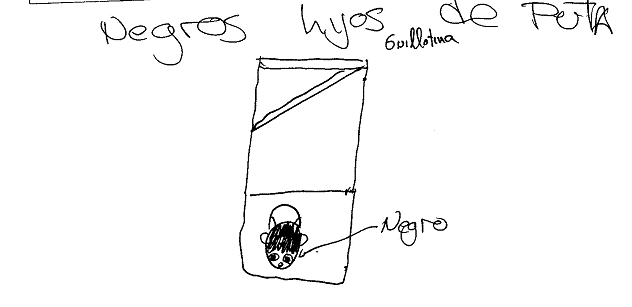 Negros hijos de PUTA
Guillotina
Negro